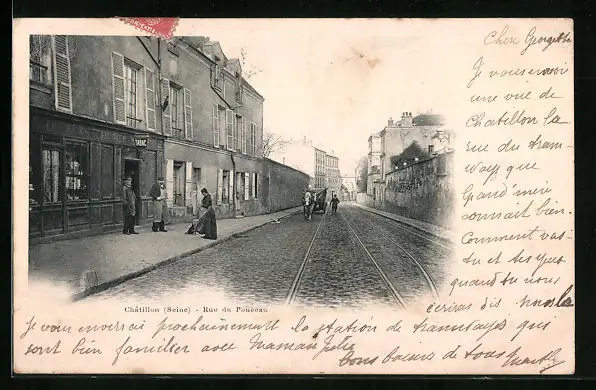 TABAC
Chère Georgette
Je vous envoie
une vue de
Chatillon la
rue du tram
way que
Grand'mère
connait bien.
Comment vas-
tu et tes yeux
quand tu nous
écriras dis nous le
Châtillon (Seine) - Rue du Ponceau
Je vous enverrai prochainement la station de tramways qui
sont bien familier avec Maman Julie
bons baisers de tous